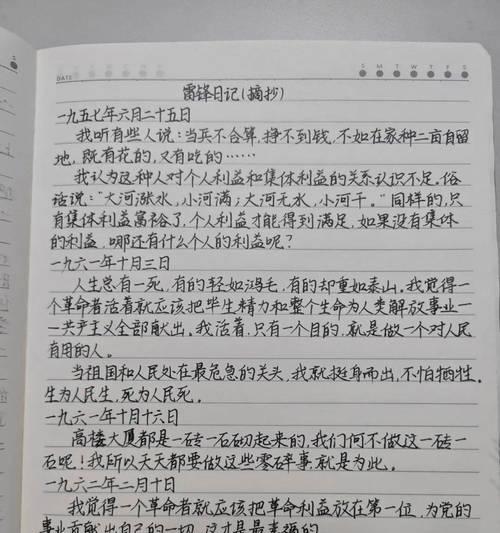 DATE
S M T W T F S
雷锋日记(摘抄)
一九五七年六月二十五日
我听有些人说:当兵不合算,挣不到钱,不如在家种二亩自留
地,既有花的,又有吃的……
我认为这种人对个人利益和集体利益的关系认识不足。俗
话说:“大河涨水,小河满;大河无水,小河干。”同样的,只
有集体利益富裕了,个人利益才能得到满足,如果没有集体
的利益,哪还有什么个人的利益呢?
一九六一年十月三日
人生总有一死,有的轻如鸿毛,有的却重如泰山。我觉得一
个革命者活着就应该把毕生精力和整个生命为人类解放事业一
一共产主义全部献出。我活着,只有一个目的,就是做一个对人民
有用的人。
当祖国和人民处在最危急的关头,我就挺身而出,不怕牺牲。
生为人民生,死为人民死。
一九六一年十月十六日
高楼大厦都是一砖一石砌起来的,我们何不做这一砖一
石呢!我所以天天都要做这些零碎事,就是为此。
一九六二年二月十日
我觉得一个革命者就应该把革命利益放在第一位,为党的
事业贡献出自己的一切,这才是最幸福的